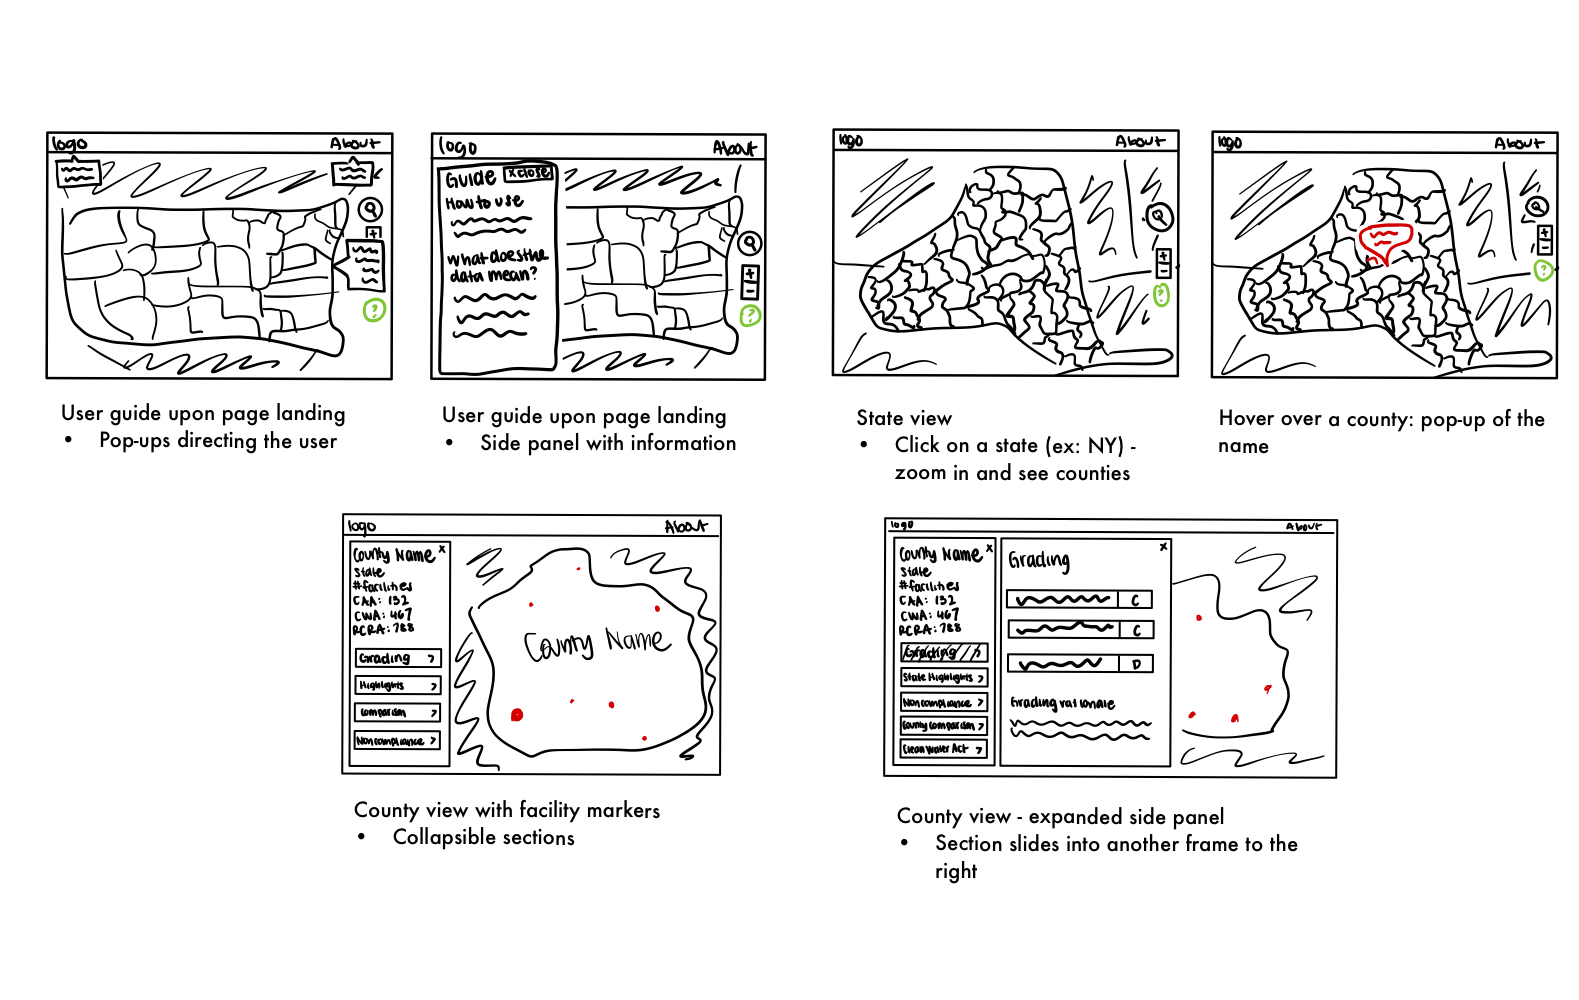 logo
About
?
User guide upon page landing
• Pop-ups directing the user
logo
About
Guide
x close
How to use
what does the
data mean?
+
-
?
User guide upon page landing
• Side panel with information
logo
About
+
-
?
State view
• Click on a state (ex: NY) -
zoom in and see counties
logo
About
+
-
?
Hover over a county: pop-up of the
name
logo
About
County Name x
State
#facilities
CAA: 132
CWA: 467
RCRA: 788
Grading >
Highlights >
Comparison >
Noncompliance >
County Name
County view with facility markers
• Collapsible sections
logo
About
County Name x
State
#facilities
CAA: 132
CWA: 467
RCRA: 788
Grading >
State Highlights >
Noncompliance >
County Comparison >
Clean Water Act >
x
Grading
C
C
D
Grading rationale
County view - expanded side panel
• Section slides into another frame to the
right